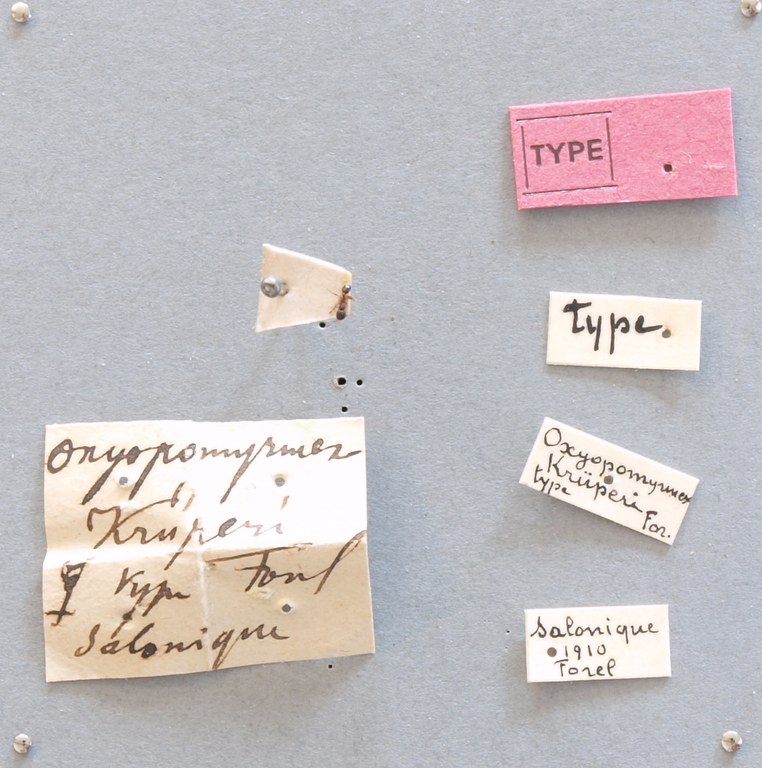 TYPE
type.
Oxyopomyrmex
Krüperi
type For.
Salonique
1910
Forel
Oxyopomyrmex
Krüperi
☿ type Forel
Salonique